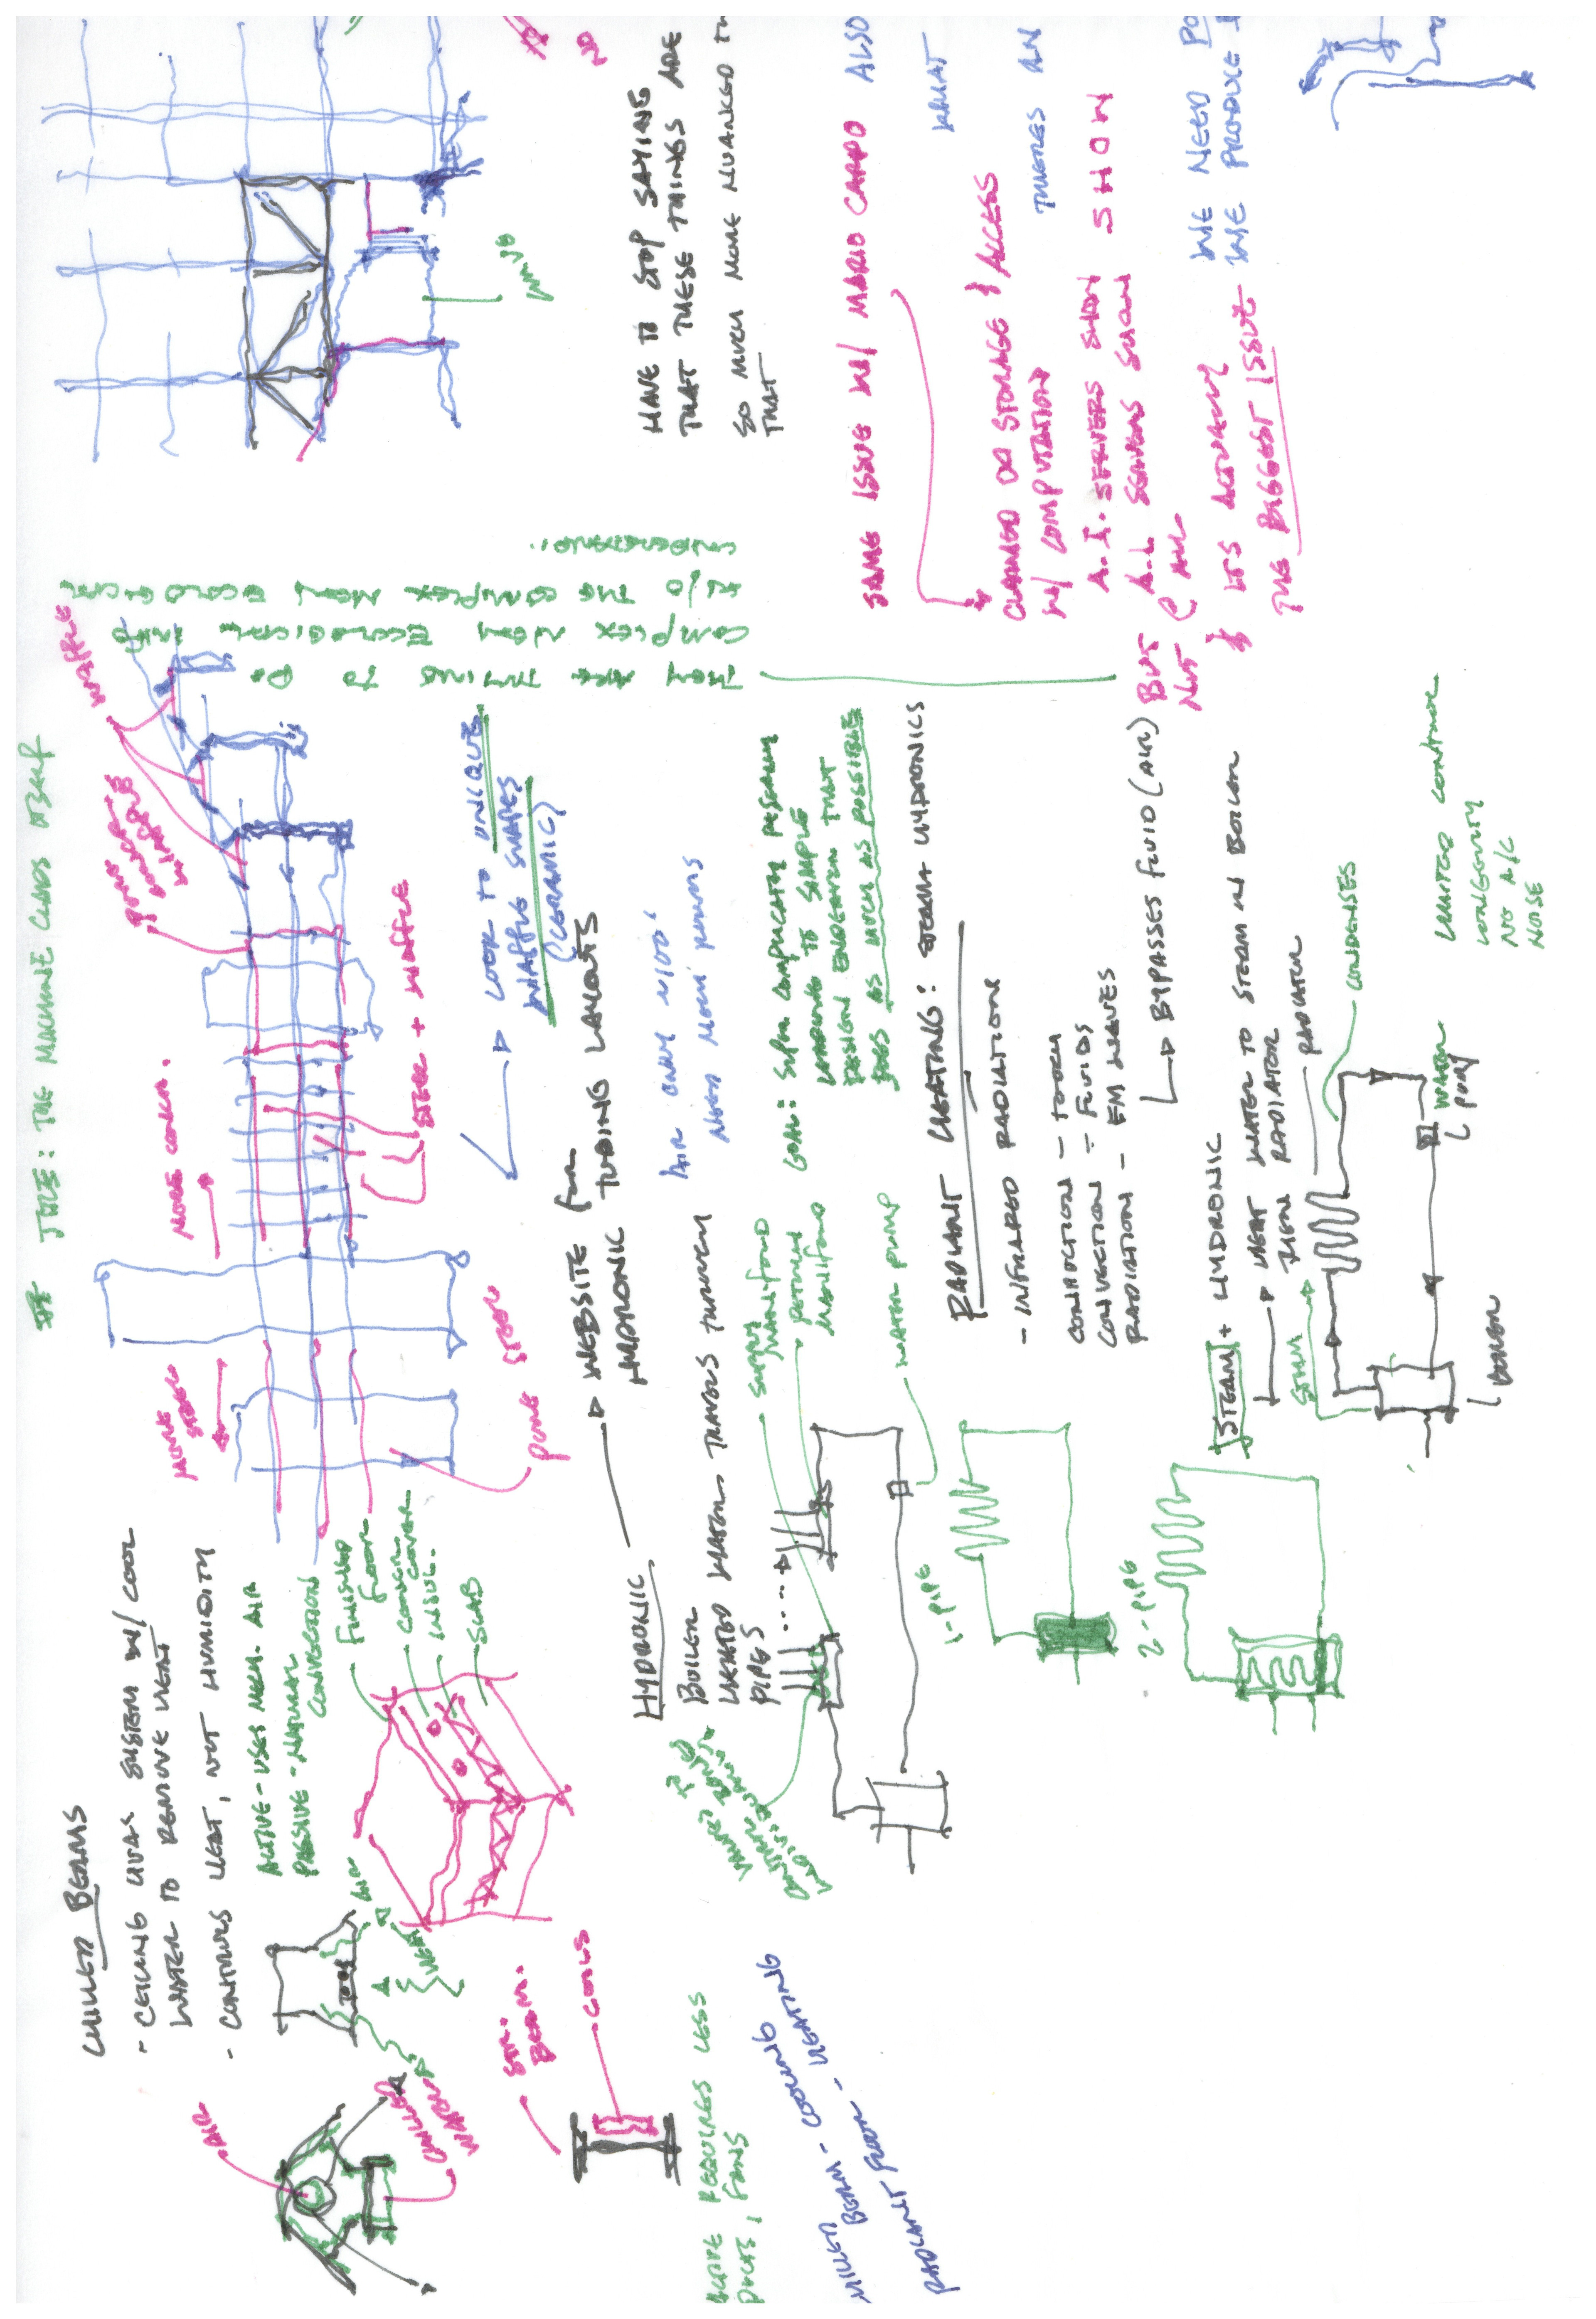 TITLE: THE MACHINE CLADS ITSELF
CHILLED BEAMS
- CEILING HVAC SYSTEM W/ COOL
WATER TO REMOVE HEAT
- CONTROLS HEAT, NOT HUMIDITY
ACTIVE - USES MECH. AIR
PASSIVE - NATURAL
CONVECTION
AIR
CHILLED
WATER
AIR
HEAT
FINISHED
FLOOR
CONCR.
COVER
INSUL.
SLAB
STR.
BEAM.
COILS
ACTIVE REQUIRES LESS
DUCTS, FANS
CHILLED BEAM - COOLING
RADIANT FLOOR - HEATING
MORE
STEEL
MORE CONCR.
STEEL
PUNE
WAFFLE
STEEL + WAFFLE
LOOK TO UNIQUE
WAFFLE SHAPES
(CERAMIC)
HYDRONIC
WEBSITE for
HYDRONIC TUBING LAYOUTS
BOILER
HEATED WATER TRAVELS THROUGH
PIPES
SUPPLY
MANIFOLD
RETURN
MANIFOLD
WATER PUMP
1-PIPE
2-PIPE
AIR ONLY ~100'
NEED MECH ROOMS
GOAL: SUPER COMPLICATED RESEARCH
LEADING TO SIMPLE
DESIGN ENDEAVOR THAT
DOES AS MUCH AS POSSIBLE
THEY ARE TRYING TO DO
COMPLEX NON ECOLOGICAL INTO
W/O THE COMPLEX NON ECOLOGICAL
UNDERSTAND.
RADIANT HEATING: STEAM HYDRONICS
- INFRARED RADIATIONS
CONDUCTION - TOUCH
CONVECTION - FLUIDS
RADIATION - EM WAVES
BYPASSES FLUID (AIR)
STEAM + HYDRONIC
HEAT WATER TO STEAM IN BOILER
THEN RADIATOR
STEAM
RADIATOR
CONDENSES
WATER
PUMP
BOILER
LIMITED CONTROL
LONGEVITY
NO A/C
NOISE
HAVE TO STOP SAYING
THAT THESE THINGS ARE
SO MUCH MORE NUANCED TH
THAT
NO
SAME ISSUE W/ MARIO CARPO ALSO
WHAT
CLAIMED DO STORAGE & ACCESS
W/ COMPUTATION
THERES AN
A.I. SERVERS SHOW
BUT A.I. SERVERS SHOW SHOW
NOT @ ALL
& ITS ACTUALLY
THE BIGGEST ISSUE
WE NEED PO
WE PRODUCE